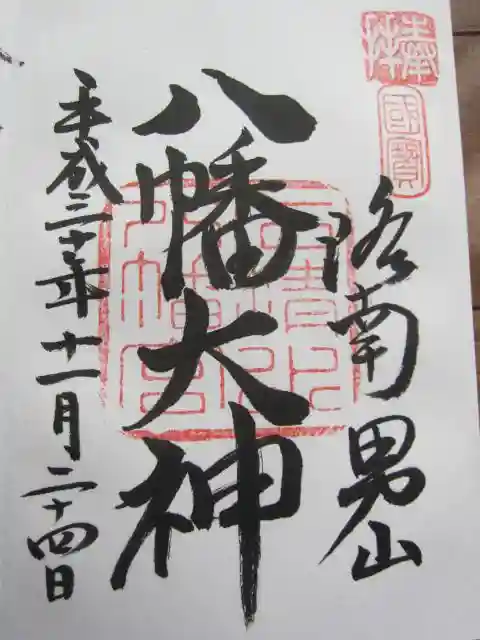 奉拝
國寶
洛南男山
八幡大神
石清水
八幡宮
平成三十年十一月二十四日